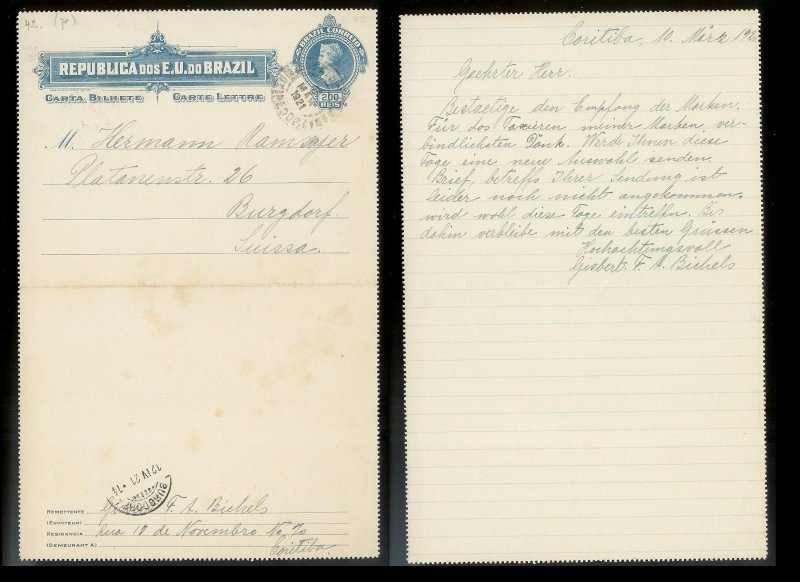 42. (70)
BRAZIL CORREIO
REPUBLICA DOS E.U. DO BRAZIL
CARTA BILHETE CARTE LETTRE
200
REIS
1921
M. Hermann
Platanenstr. 26
Burgdorf.
Suissa.
BURGDORF
12 IV 21
REMETTENTE F. A. Bichels
(ENVOYEUR)
RESIDENCIA Rua 15 de Novembro No 70
(DEMEURANT A) Coritiba
Coritiba, 10. März 192
Geehrter Herr.
Bestaetige den Empfang der Marken.
Für das Taxieren meiner Marken, ver-
bindlichsten Dank. Werde Ihnen diese
Tage eine neue Auswahl senden.
Brief, betreffs Ihrer Sendung ist
leider noch nicht angekommen,
wird wohl diese Tage eintreffen. Bis
dahin verbleibe mit den besten Grüssen
Hochachtungsvoll
Gisbert. F. A. Bichels